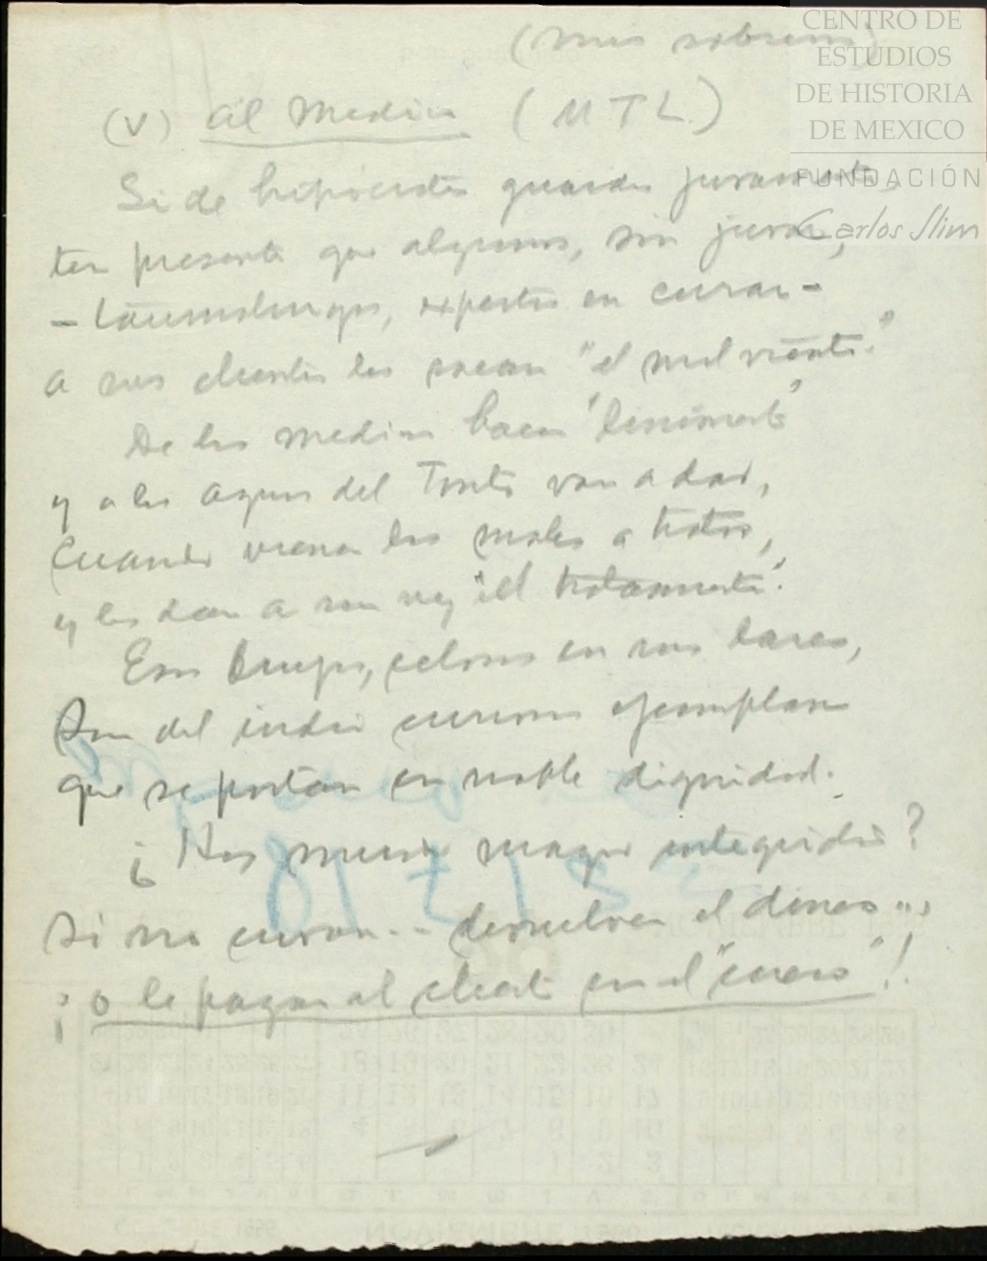 (mis sobrinos)
(V) Al Medico (MTL)
Si de hipócrates guardas juramento,
ten presente que algunos, sin jurar,
- taumaturgos, expertos en curar -
a sus clientes les sacan "el mal viento."
De los medios hacen
y a las aguas del Tonto van a dar,
Cuando vienen los males a tratar,
y les dan a su vez "el tratamiento".
Esos Brujos, celosos en sus lares,
Son del indio curiosos ejemplares
que se portan con noble dignidad.
¿Has mayor integridad?
Si no curan... devuelven el dinero...
¡o le pagan al cliente con el "cuero"!
CENTRO DE
ESTUDIOS
DE HISTORIA
DE MEXICO
FUNDACIÓN
Carlos Slim